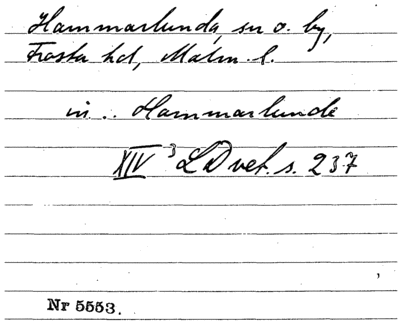 Hammarlunda, sn o. by,
Frosta hd, Malm. l.
in .. Hammarlunde
XIV³ LDvet. s. 237
Nr 5553.